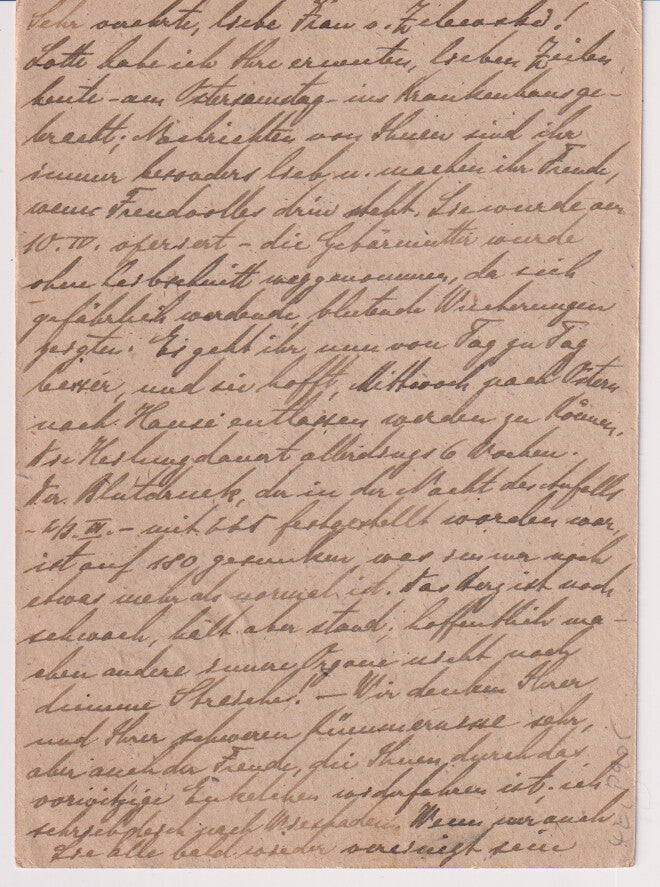 Sehr verehrte, liebe Frau v. Zelewski!
Lotte habe ich Ihre erneuten, lieben Zeilen
heute - am Ostersamstag - ins Krankenhaus ge-
bracht; Nachrichten von Ihnen sind ihr
immer besonders lieb u. machen ihr Freude,
wenn Freudvolles drin steht. Sie wurde am
10. IV. operiert - die Gebärmutter wurde
ohne Leibschnitt weggenommen, da sich
gefährlich werdende, blutende Wucherungen
zeigten. Es geht ihr nun von Tag zu Tag
besser, und sie hofft, Mittwoch nach Ostern
nach Hause entlassen werden zu können.
Die Heilung dauert allerdings 6 Wochen.
Der Blutdruck, der in der Nacht des Anfalls
III. - mit 225 festgestellt worden war,
ist auf 180 gesunken was immer noch
etwas mehr als normal ist. Das Herz ist noch
schwach, hält aber stand; hoffentlich ma-
chen andere innere Organe nicht noch
dumme Streiche! - Wir denken Ihrer
und Ihrer schweren Kümmernisse sehr,
aber auch der Freude, die Ihnen durch das
vorwitzige Enkelchen widerfahren ist; ich
schrieb gleich nach Wiesbaden. Wenn wir auch
Sie alle bald wieder vereinigt sein